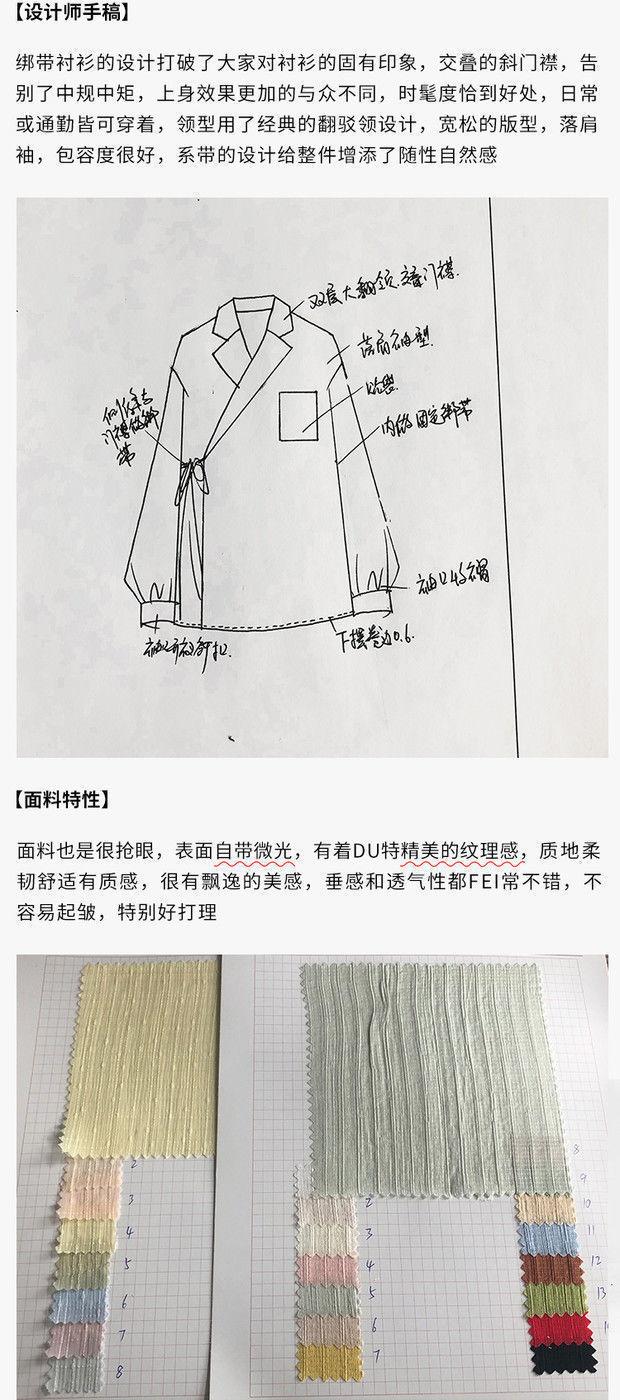 【设计师手稿】
绑带衬衫的设计打破了大家对衬衫的固有印象，交叠的斜门襟，告
别了中规中矩，上身效果更加的与众不同，时髦度恰到好处，日常
或通勤皆可穿着，领型用了经典的翻驳领设计，宽松的版型，落肩
袖，包容度很好，系带的设计给整件增添了随性自然感
双层大翻领.交叠门襟.
落肩袖型.
贴袋
内做固定绑带
门襟做绑
带
袖口
下摆卷边0.6.
【面料特性】
面料也是很抢眼，表面自带微光，有着DU特精美的纹理感，质地柔
韧舒适有质感，很有飘逸的美感，垂感和透气性都FEI常不错，不
容易起皱，特别好打理
2
3
4
5
6
7
8
2
3
4
5
6
7
8
9
10
11
12
13